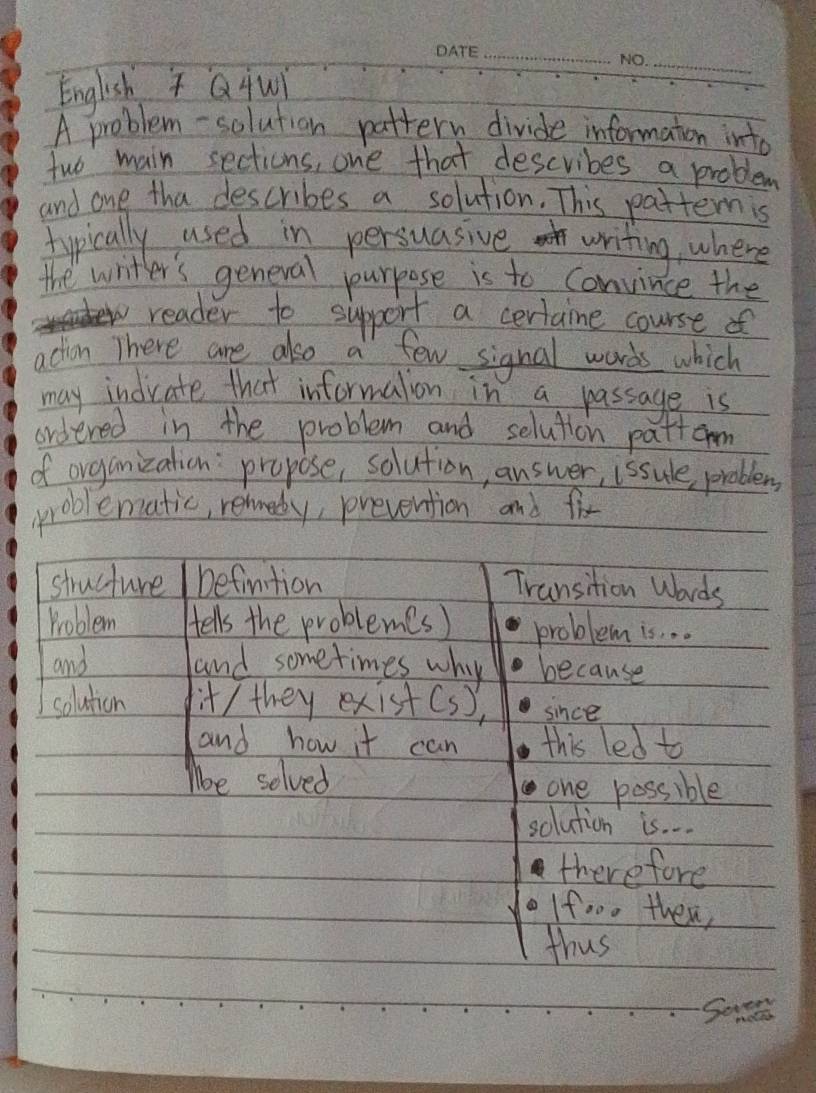 DATE NO.
English 7 Q4W1
A problem-solution pattern divide information into
two main sections, one that describes a problem
and one tha describes a solution. This pattern is
typically used in persuasive writing, where
the writer's general purpose is to convince the
reader to support a certaine course of
action There are also a few signal words which
may indicate that information in a passage is
ordered in the problem and solution pattern
of organization: propose, solution, answer, issule, problem,
problematic, remedy, prevention and fix
structure Definition Transition Words
Problem tells the problem(s) • problem is...
and and sometimes why • because
solution it/they exist(s), • since
and how it can • this led to
be solved • one possible
solution is...
• therefore
• If... then,
thus
Seven
notes